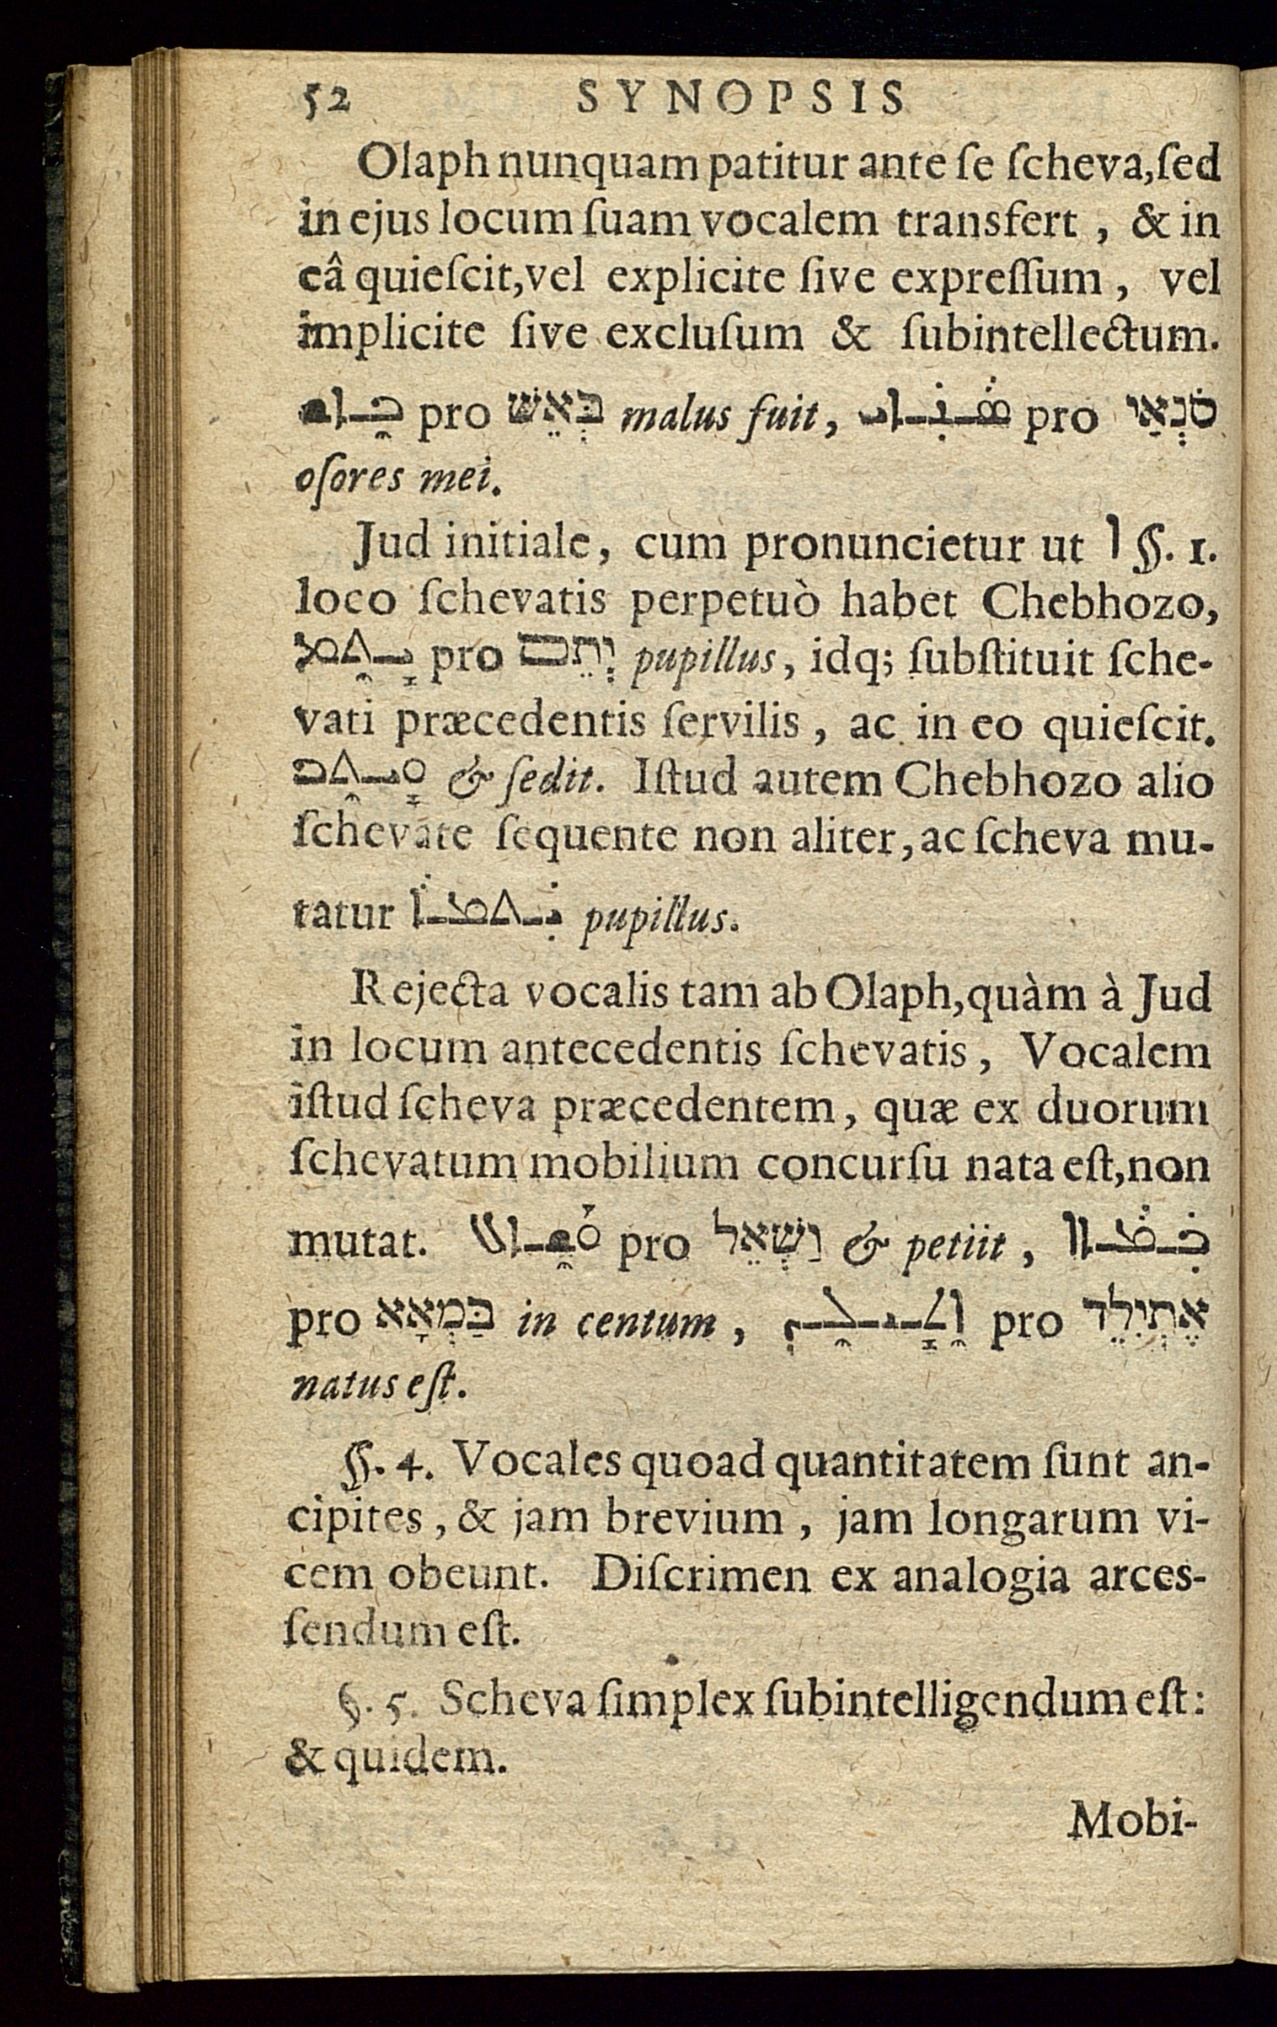 52 SYNOPSIS
Olaph nunquam patitur ante ſe ſcheva, ſed
in ejus locum ſuam vocalem transfert, & in
eâ quieſcit, vel explicite ſive expreſſum, vel
implicite ſive excluſum & ſubintellectum.
ܒܐܫ pro בְּאֵשׁ malus fuit, ܣܢܐܝ pro סֹנְאַי
oſores mei.
Jud initiale, cum pronuncietur ut ܐ §. 1.
loco ſchevatis perpetuò habet Chebhozo,
ܝܬܡ pro יָתֵם pupillus, idq; ſubſtituit ſche-
vati præcedentis ſervilis, ac in eo quieſcit.
ܘܝܬܒ & ſedit. Iſtud autem Chebhozo alio
ſchevate ſequente non aliter, ac ſcheva mu-
tatur ܝܬܡܐ pupillus.
Rejecta vocalis tam ab Olaph, quàm à Jud
in locum antecedentis ſchevatis, Vocalem
iſtud ſcheva præcedentem, quæ ex duorum
ſchevatum mobilium concurſu nata eſt, non
mutat. ܘܫܐܠ pro וַשְׁאֵל & petiit, ܒܡܐܐ
pro בַּמְאָא in centum, ܐܬܝܠܕ pro אֶתְיִלֵד
natus eſt.
§. 4. Vocales quoad quantitatem ſunt an-
cipites, & jam brevium, jam longarum vi-
cem obeunt. Diſcrimen ex analogia arces-
ſendum eſt.
§. 5. Scheva ſimplex ſubintelligendum eſt:
& quidem.
Mobi-